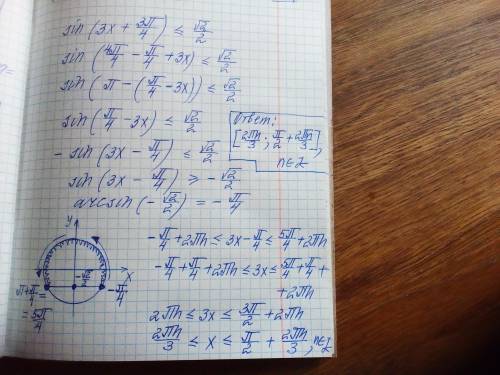 sin(3x + 3π/4) ≤ √2/2
sin(4π/4 - π/4 + 3x) ≤ √2/2
sin(π - (π/4 - 3x)) ≤ √2/2
sin(π/4 - 3x) ≤ √2/2
- sin(3x - π/4) ≤ √2/2
sin(3x - π/4) ≥ - √2/2
arcsin(- √2/2) = - π/4
Ответ:
[2πn/3; π/2 + 2πn/3],
n∈Z
y
x
- √2/2
π + π/4 =
= 5π/4
- π/4
- π/4 + 2πn ≤ 3x - π/4 ≤ 5π/4 + 2πn
- π/4 + π/4 + 2πn ≤ 3x ≤ 5π/4 + π/4 +
+ 2πn
2πn ≤ 3x ≤ 3π/2 + 2πn
2πn/3 ≤ x ≤ π/2 + 2πn/3, n∈Z